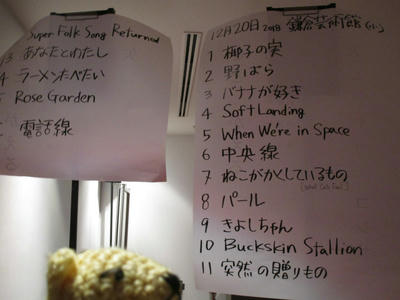 Super Folk Song Returned
3 あなたとわたし
4 ラーメンたべたい
5 Rose Garden
電話線
12月20日 2018 鎌倉芸術館 (小)
1 椰子の実
2 野ばら
3 バナナが好き
4 Soft Landing
5 When We're in Space
6 中央線
7 ねこがかくしているもの
[What Cats Feel]
8 パール
9 きよしちゃん
10 Buckskin Stallion
11 突然の贈りもの